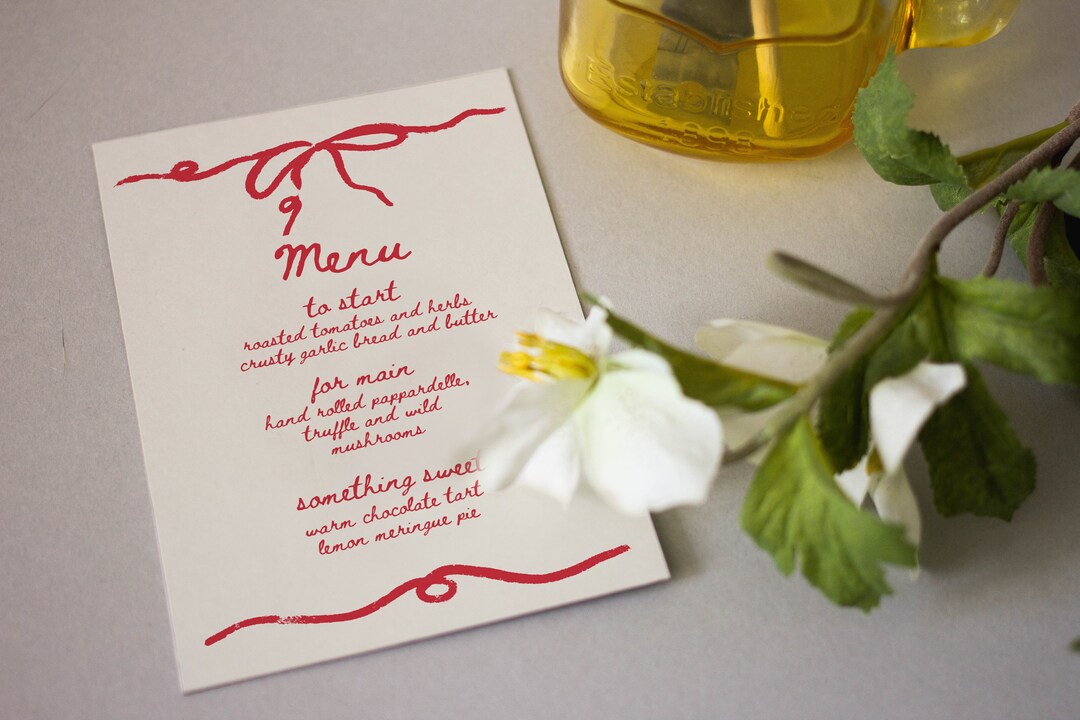 Established
1898
Menu
to start
roasted tomatoes and herbs
crusty garlic bread and butter
for main
hand rolled pappardelle,
truffle and wild
mushrooms
something sweet
warm chocolate tart
lemon meringue pie